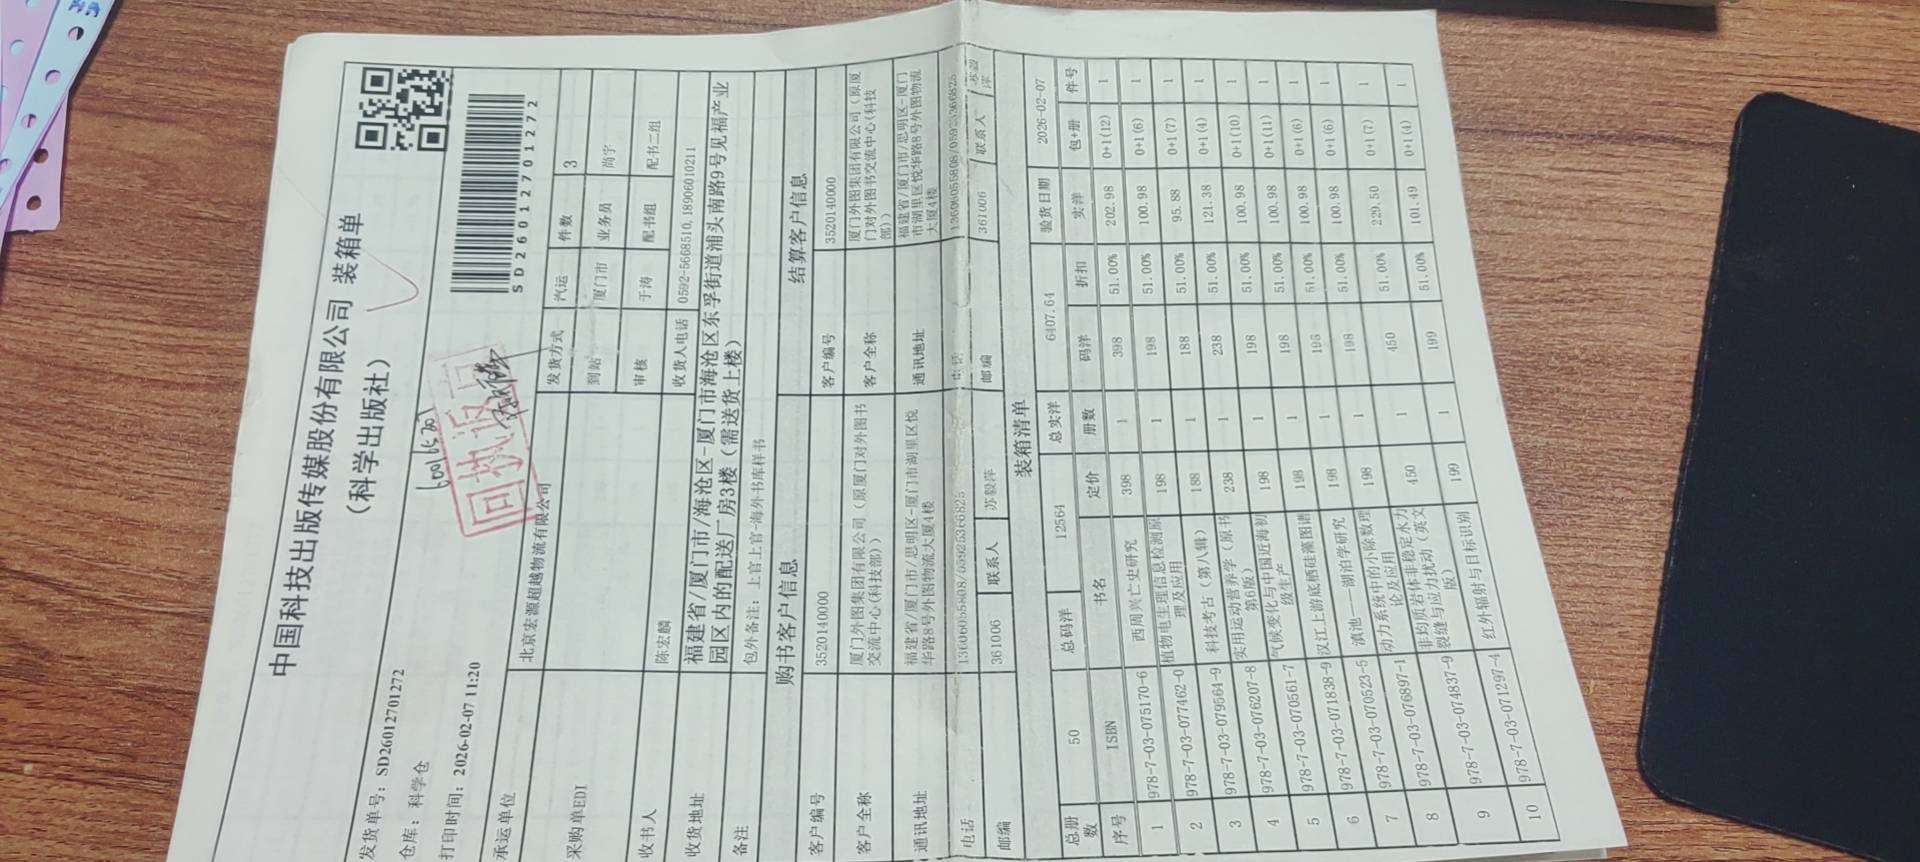 中国科技出版传媒股份有限公司 装箱单
(科学出版社)
发货单号: SD26012701272
仓库: 科学仓
打印时间: 2026-02-07 11:20
SD26012701272
回执返回
承运单位 北京宏源超越物流有限公司 发货方式 汽运 件数 3
采购单EDI 到站 厦门市 业务员 尚宇
审核 于涛 配书组 配书二组
收书人 陈宏麟 收货人电话 0592-5668510,18906010211
收货地址 福建省/厦门市/海沧区-厦门市海沧区东孚街道浦头南路9号见福产业
园区内的配送厂房3楼(需送货上楼)
备注 包外备注: 上官上官-海外书库样书
购书客户信息 结算客户信息
客户编号 3520140000 客户编号 3520140000
客户全称 厦门外图集团有限公司(原厦门对外图书
交流中心(科技部)) 客户全称 厦门外图集团有限公司(原厦
门对外图书交流中心(科技
部))
通讯地址 福建省/厦门市/思明区-厦门市湖里区悦
华路8号外图物流大厦4楼 通讯地址 福建省/厦门市/思明区-厦门
市湖里区悦华路8号外图物流
大厦4楼
电话 13606055808/05925366825 电话 13606055808/05925366825
邮编 361006 联系人 苏毅萍 邮编 361006 联系人 苏毅萍
装箱清单
总册数 50 总码洋 12564 总实洋 6407.64 验货日期 2026-02-07
序号 ISBN 书名 定价 册数 码洋 折扣 实洋 包+册 件号
1 978-7-03-075170-6 西周兴亡史研究 398 1 398 51.00% 202.98 0+1(12) 1
2 978-7-03-077462-0 植物电生理信息检测原
理及应用 198 1 198 51.00% 100.98 0+1(6) 1
3 978-7-03-079564-9 科技考古(第八辑) 188 1 188 51.00% 95.88 0+1(7) 1
4 978-7-03-076207-8 实用运动营养学(原书
第6版) 238 1 238 51.00% 121.38 0+1(4) 1
5 978-7-03-070561-7 气候变化与中国近海初
级生产 198 1 198 51.00% 100.98 0+1(10) 1
6 978-7-03-071838-9 汉江上游底栖硅藻图谱 198 1 198 51.00% 100.98 0+1(11) 1
7 978-7-03-070523-5 滇池——湖泊学研究 198 1 198 51.00% 100.98 0+1(6) 1
8 978-7-03-076897-1 动力系统中的小除数理
论及应用 198 1 198 51.00% 100.98 0+1(6) 1
9 978-7-03-074837-9 非均质岩体非稳定水力
裂缝与应力扰动(英文
版) 450 1 450 51.00% 229.50 0+1(7) 1
10 978-7-03-071297-4 红外辐射与目标识别 199 1 199 51.00% 101.49 0+1(4) 1